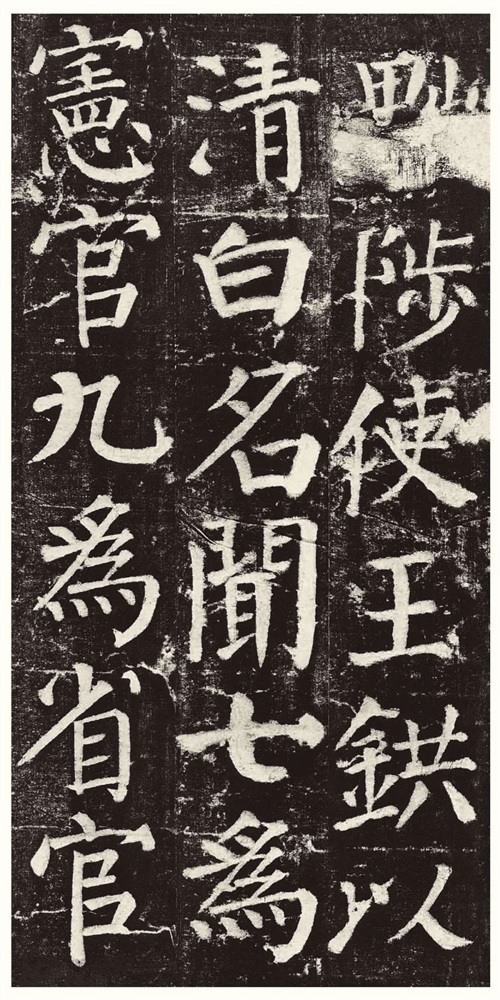 黜陟使王鉷以
清白名聞七爲
憲官九爲省官